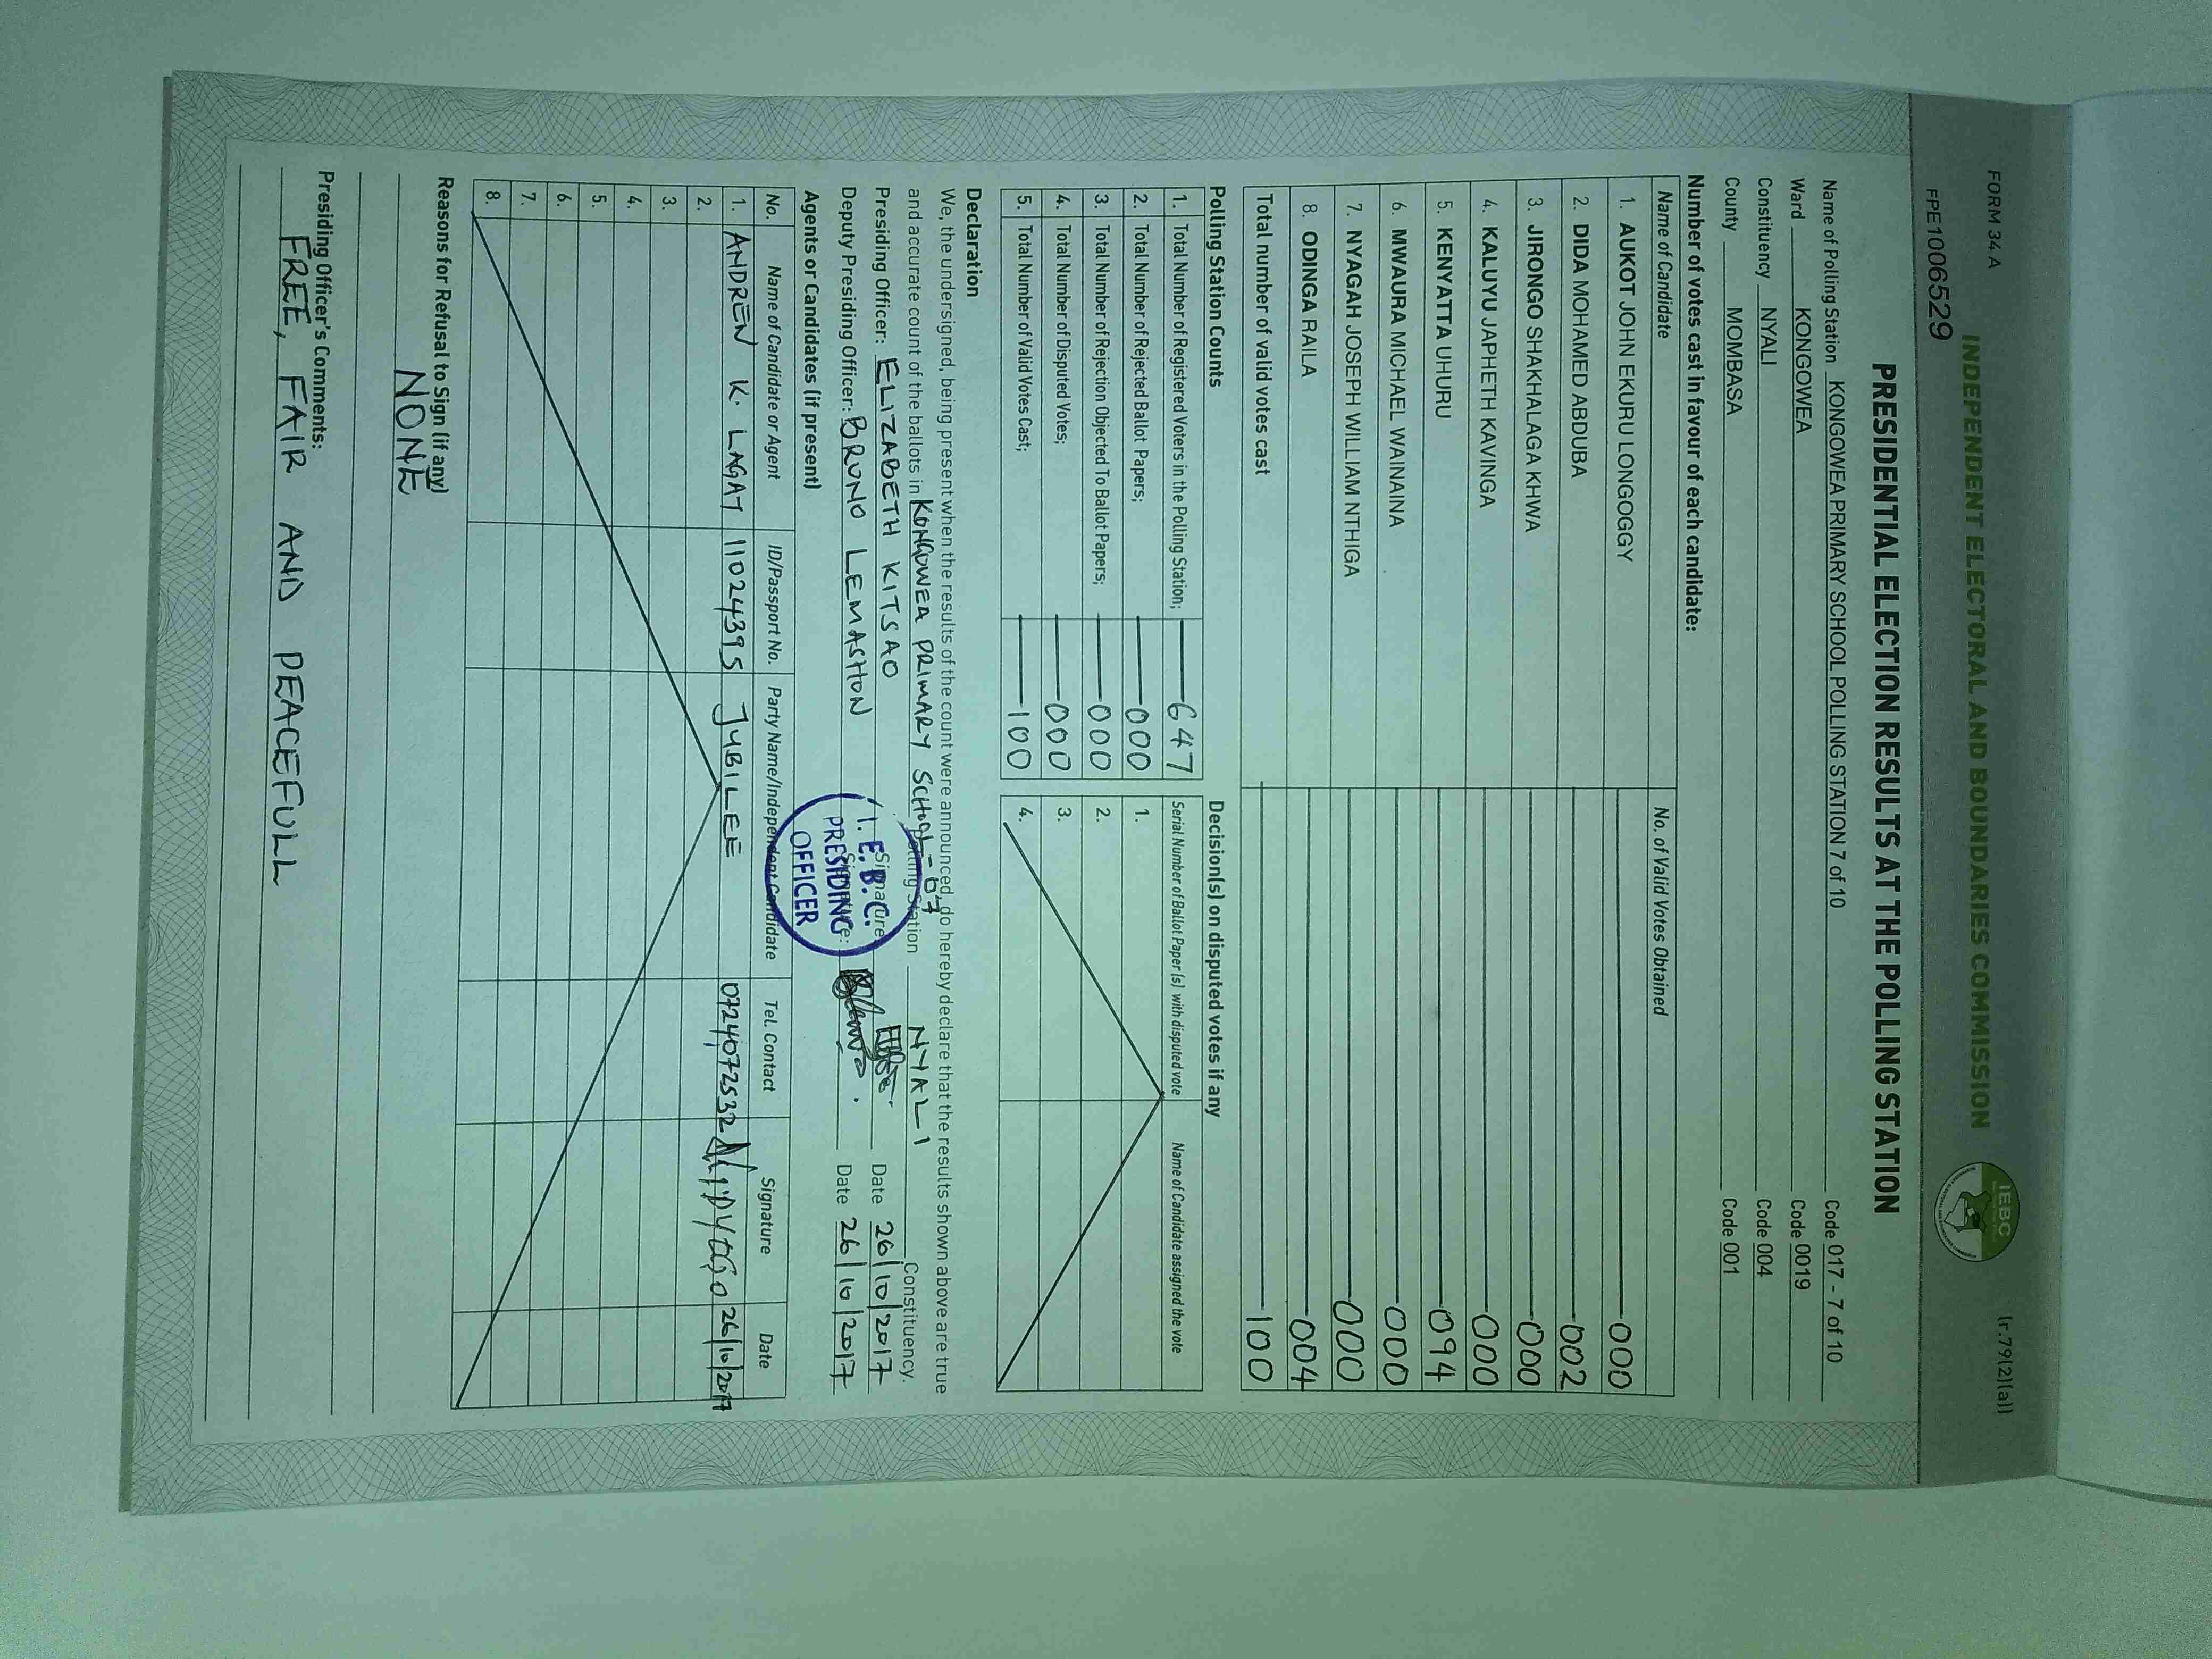 FORM 34 A
(r.79(2)(a))
INDEPENDENT ELECTORAL AND BOUNDARIES COMMISSION
IEBC
FPE1006529
PRESIDENTIAL ELECTION RESULTS AT THE POLLING STATION
Name of Polling Station KONGOWEA PRIMARY SCHOOL POLLING STATION 7 of 10 Code 017 - 7 of 10
Ward KONGOWEA Code 0019
Constituency NYALI Code 004
County MOMBASA Code 001
Number of votes cast in favour of each candidate:
Name of Candidate No. of Valid Votes Obtained
1. AUKOT JOHN EKURU LONGOGGY 000
2. DIDA MOHAMED ABDUBA 002
3. JIRONGO SHAKHALAGA KHWA 000
4. KALUYU JAPHETH KAVINGA 000
5. KENYATTA UHURU 094
6. MWAURA MICHAEL WAINAINA 000
7. NYAGAH JOSEPH WILLIAM NTHIGA 000
8. ODINGA RAILA 004
Total number of valid votes cast 100
Polling Station Counts
1. Total Number of Registered Voters in the Polling Station; 647
2. Total Number of Rejected Ballot Papers; 000
3. Total Number of Rejection Objected To Ballot Papers; 000
4. Total Number of Disputed Votes; 000
5. Total Number of Valid Votes Cast; 100
Decision(s) on disputed votes if any
Serial Number of Ballot Paper (s) with disputed vote Name of Candidate assigned the vote
1.
2.
3.
4.
Declaration
We, the undersigned, being present when the results of the count were announced, do hereby declare that the results shown above are true
and accurate count of the ballots in KONGOWEA PRIMARY SCHOOL - 07 Polling Station NYALI Constituency.
Presiding Officer: ELIZABETH KITSAO Signature Date 26/10/2017
Deputy Presiding Officer: BRUNO LEMASHON Signature: Date 26/10/2017
I.E.B.C.
PRESIDING
OFFICER
Agents or Candidates (if present)
No. Name of Candidate or Agent ID/Passport No. Party Name/Independent Candidate Tel. Contact Signature Date
1. ANDREN K. LAGAT 11024395 JUBILEE 0724072532 26/10/2017
2.
3.
4.
5.
6.
7.
8.
Reasons for Refusal to Sign (if any)
NONE
Presiding Officer's Comments:
FREE, FAIR AND PEACEFULL